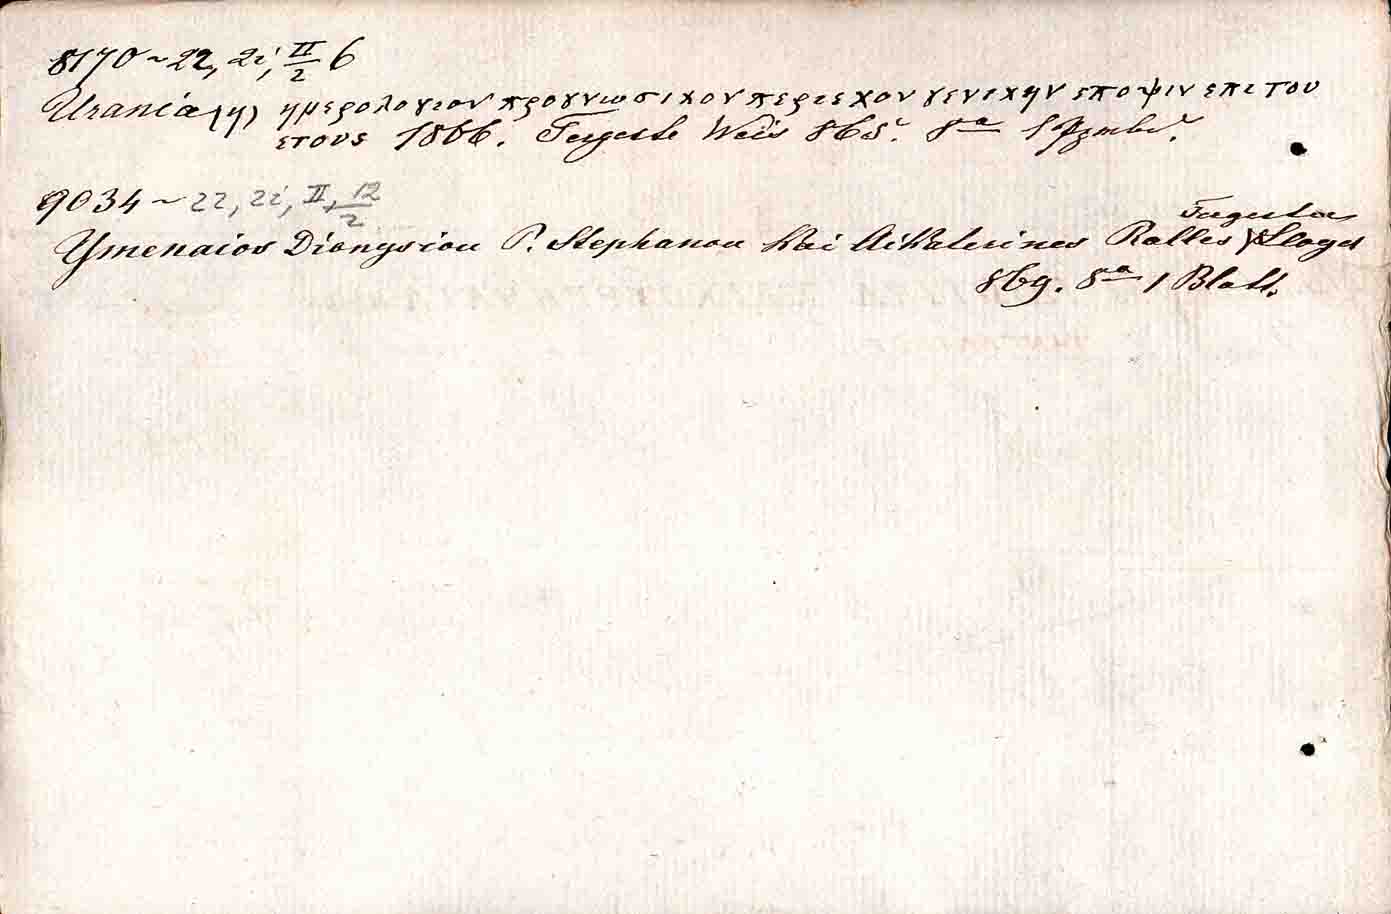 8170 ~ 22, 2i, II/2 6
Urania (η) ημερολογιον προγνωσικον περιεχον γενικην εποψιν επι του
ετους 1866. Tergeste Weis 865. 8a
9034 ~ 22, 2i, II, 12/2
Tergestae
Ymenaios Dionysiou P. Stephanou kai Aikaterines Ralles Lloyd
869. 8a 1 Blatt.